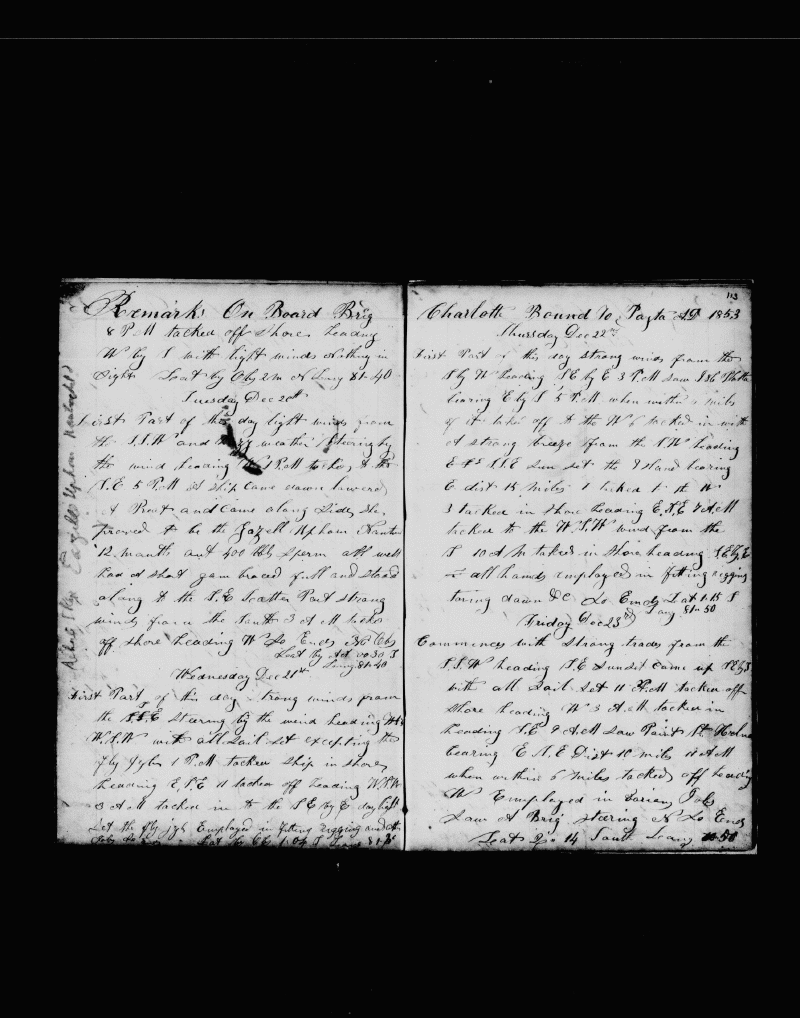 Remarks On Board Brig
8 P.M tacked off Shore heading
W by S with light winds Nothing in
Sight Lat by Ob 2 m N Long 81-40
Tuesday Dec 20th
First Part of this day light winds from
the S.S.W and weather Steering by
the wind heading W 1 P.M tacked to the
S.E 5 P.M A Ship came down lowered
A Boat and came along Side She
proved to be the Gazell Upham Nantu
12 months out 400 bbls Sperm all well
had A short gam braced full and stood
along to the S.E Latter Part strong
winds from the South 3 A.M tacked
off shore heading W So Ends
Lat by Act 00 30 S
Long 81-40
Wednesday Dec 21st
First Part of this day strong winds from
the S.S.E Stearing by the wind heading
W.S.W with all sail set excepting the
fly Jybs 1 P.M tacked Ship in shore
heading E.S.E 11 tacked off heading W.S.W
3 A.M tacked in to the S.E by E daylight
Set the fly jyb Employed in fitting rigging and
Gazelle Upham Nantucket
113
Charlotte Bound To Payta AD 1853
Thursday Dec 22nd
First Part of this day strong winds from the
S by W heading S.E by E 3 P.M saw Isle Plata
bearing E by S 5 P.M when within miles
of it tacked off to the W 6 tacked in with
A strong breeze from the S.W heading
S.S.E Sun set the Island bearing
E dist 15 miles 1 tacked to the W
3 tacked in shore heading E.S.E 7 A.M
tacked to the W.S.W wind from the
S 10 A.M tacked in Shore heading S.E by E
all hands employed in fitting rigging
taring down &c So Ends Lat 1-15 S
Long 81-50
Friday Dec 23rd
Commences with Strong trades from the
S.S.W heading S.E Sunset came up
with all Sail Set 11 P.M tacked off
Shore heading W 3 A.M tacked in
heading S.E 9 A.M Saw Point St. Helena
bearing E.S.E Dist 10 miles 11 A.M
when within 6 miles tacked off heading
W Employed in Various Jobs
Saw A Brig steering N So Ends
Lat 2 14 South Long 50